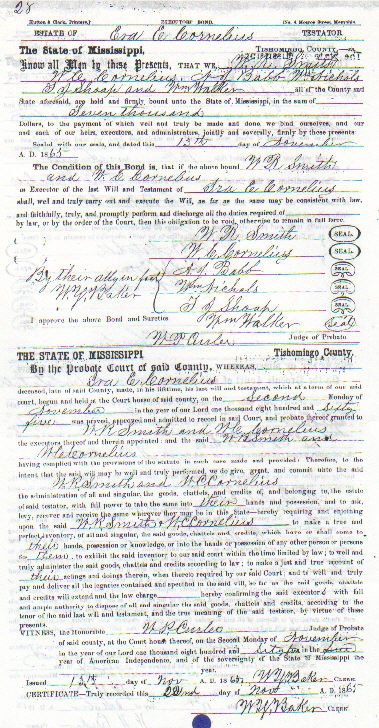 28
Hutton & Clark, Printers,] EXECUTORS' BOND. [No. 4 Monroe Street, Memphis
ESTATE OF Ira C. Cornelius TESTATOR
The State of Mississippi, Tishomingo County,
Know all Men by these Presents, THAT WE, W. R. Smith
W. C. Cornelius, A J Babb Wm Nichols
T J Shoap and Wm Walker all of the County and
State aforesaid, are held and firmly bound unto the State of Mississippi, in the sum of
Seven thousand
Dollars, to the payment of which well and truly to be made and done, we bind ourselves, and our
and each of our heirs, executors, and administrators, jointly and severally, firmly by these presents:
Sealed with our seals, and dated this 13th day of November
A. D. 1865
The Condition of this Bond is, that if the above bound W R Smith
and W. C. Cornelius
as Executor of the last Will and Testament of Ira C Cornelius
shall, well and truly carry out and execute the Will, as far as the same may be consistent with law,
and faithfully, truly, and promptly perform and discharge all the duties required of
by law, or by the order of the Court, then this obligation to be void, otherwise to remain in full force.
W. R. Smith SEAL
W C Cornelius SEAL
By their atty in fact A J Babb SEAL
W. Y. Baker Wm Nichols SEAL
T J Shoap SEAL
I approve the above Bond and Sureties Wm Walker Seal
Judge of Probate
THE STATE OF MISSISSIPPI Tishomingo County,
By the Probate Court of said County, WHEREAS,
Ira C. Cornelius
deceased, late of said County, made, in his lifetime, his last will and testament, which at a term of our said
court, begun and held at the Court house of said county, on the Second Monday of
November in the year of our Lord one thousand eight hundred and Sixty
five was proved, approved and admitted to record in said Court, and probate thereof granted to
W. R. Smith and W. C. Cornelius
the executors thereof and therein appointed: and the said W R Smith and
W C Cornelius
having complied with the provisions of the statute in such case made and provided: Therefore, to the
intent that the said will may be well and truly performed, we do give, grant, and commit unto the said
W R Smith and W C Cornelius
the administration of all and singular, the goods, chattels, and credits of, and belonging to, the estate
of said testator, with full power to take the same into their hands and possession, and to ask,
levy, recover and receive the same wherever they may be in this State—hereby requiring and enjoining
upon the said W. R. Smith & W. C. Cornelius to make a true and
perfect inventory, of all and singular, the said goods, chattels and credits, which have or shall come to
their hands, possession or knowledge, or into the hands or possession of any other person or persons
for them, to exhibit the said inventory to our said court within the time limited by law; to well and
truly administer the said goods, chattels and credits according to law; to make a just and true account of
their actings and doings therein, when thereto required by our said Court; and to well and truly
pay and deliver all the legacies contained and specified in the said will, so far as the said goods, chattels
and credits will extend and the law charge hereby confirming the said executors with full
and ample authority to dispose of all and singular the said goods, chattels and credits, according to the
tenor of the said last will and testament, and the true meaning of the said testator by virtue of these
presents.
WITNESS, the Honorable Judge of Probate
of said county, at the Court house thereof, on the Second Monday of November
in the year of our Lord one thousand eight hundred and Sixty five in the
year of American Independence, and of the sovereignty of the State of Mississippi the
year.
Issued 13th day of Nov A. D. 1865, W Y Baker CLERK
CERTIFICATE—Truly recorded this 22nd day of Nov A. D. 1865
W Y Baker CLERK